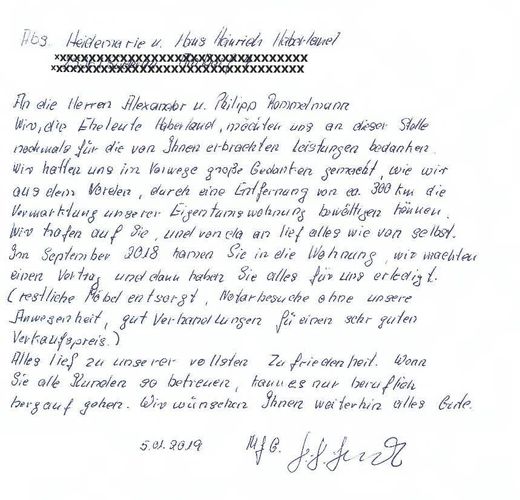 Abs. Heidemarie u. Hans Hinrich Haberland
xxxxxxxxxxxxxxxxxxxxxxxxxxxxxxxx
xxxxxxxxxxxxxxxxxxxxxxxxxxxxxxxx
An die Herren Alexander u. Philipp Rommelmann
Wir, die Eheleute Haberland, möchten uns an dieser Stelle
nochmals für die von Ihnen erbrachten Leistungen bedanken.
Wir hatten uns im Vorwege große Gedanken gemacht, wie wir
aus dem Norden, durch eine Entfernung von ca. 300 km die
Vermarktung unserer Eigentumswohnung bewältigen können.
Wir trafen auf Sie, und von da an lief alles wie von selbst.
Im September 2018 kamen Sie in die Wohnung, wir machten
einen Vertrag und dann haben Sie alles für uns erledigt.
(restliche Möbel entsorgt, Notarbesuche ohne unsere
Anwesenheit, gut Verhandlungen für einen sehr guten
Verkaufspreis.)
Alles lief zu unserer vollsten Zufriedenheit. Wenn
Sie alle Kunden so betreuen, kann es nur beruflich
bergauf gehen. Wir wünschen Ihnen weiterhin alles Gute.
5.01.2019 MfG.